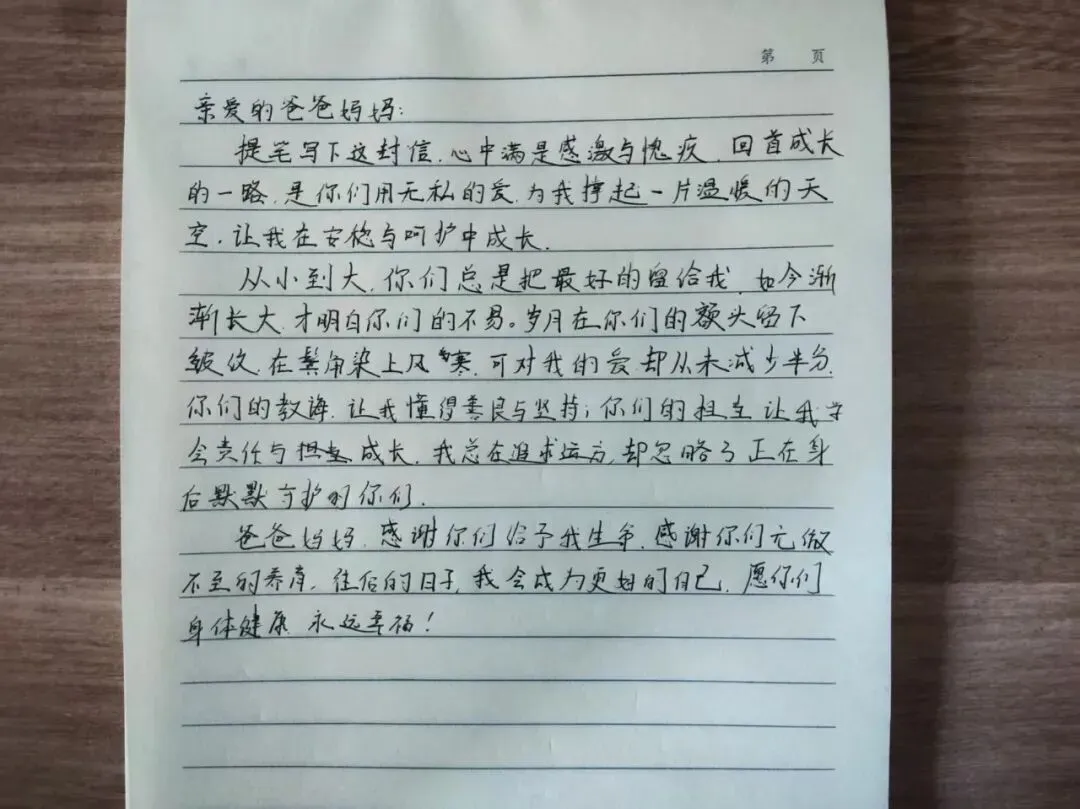 第 页
亲爱的爸爸妈妈：
提笔写下这封信，心中满是感激与愧疚，回首成长
的一路，是你们用无私的爱，为我撑起一片温暖的天
空，让我在安稳与呵护中成长。
从小到大，你们总是把最好的留给我，如今渐
渐长大，才明白你们的不易。岁月在你们的额头留下
皱纹，在鬓角染上风寒，可对我的爱却从未减少半分，
你们的教诲，让我懂得善良与坚持；你们的担当让我学
会责任与担当 成长，我总在追求远方，却忽略了正在身
后默默守护的你们。
爸爸妈妈，感谢你们给予我生命，感谢你们无微
不至的养育，往后的日子，我会成为更好的自己，愿你们
身体健康 永远幸福！